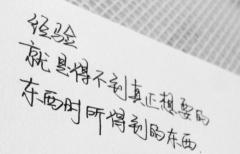 经验
就是得不到真正想要的
东西时所得到的东西.